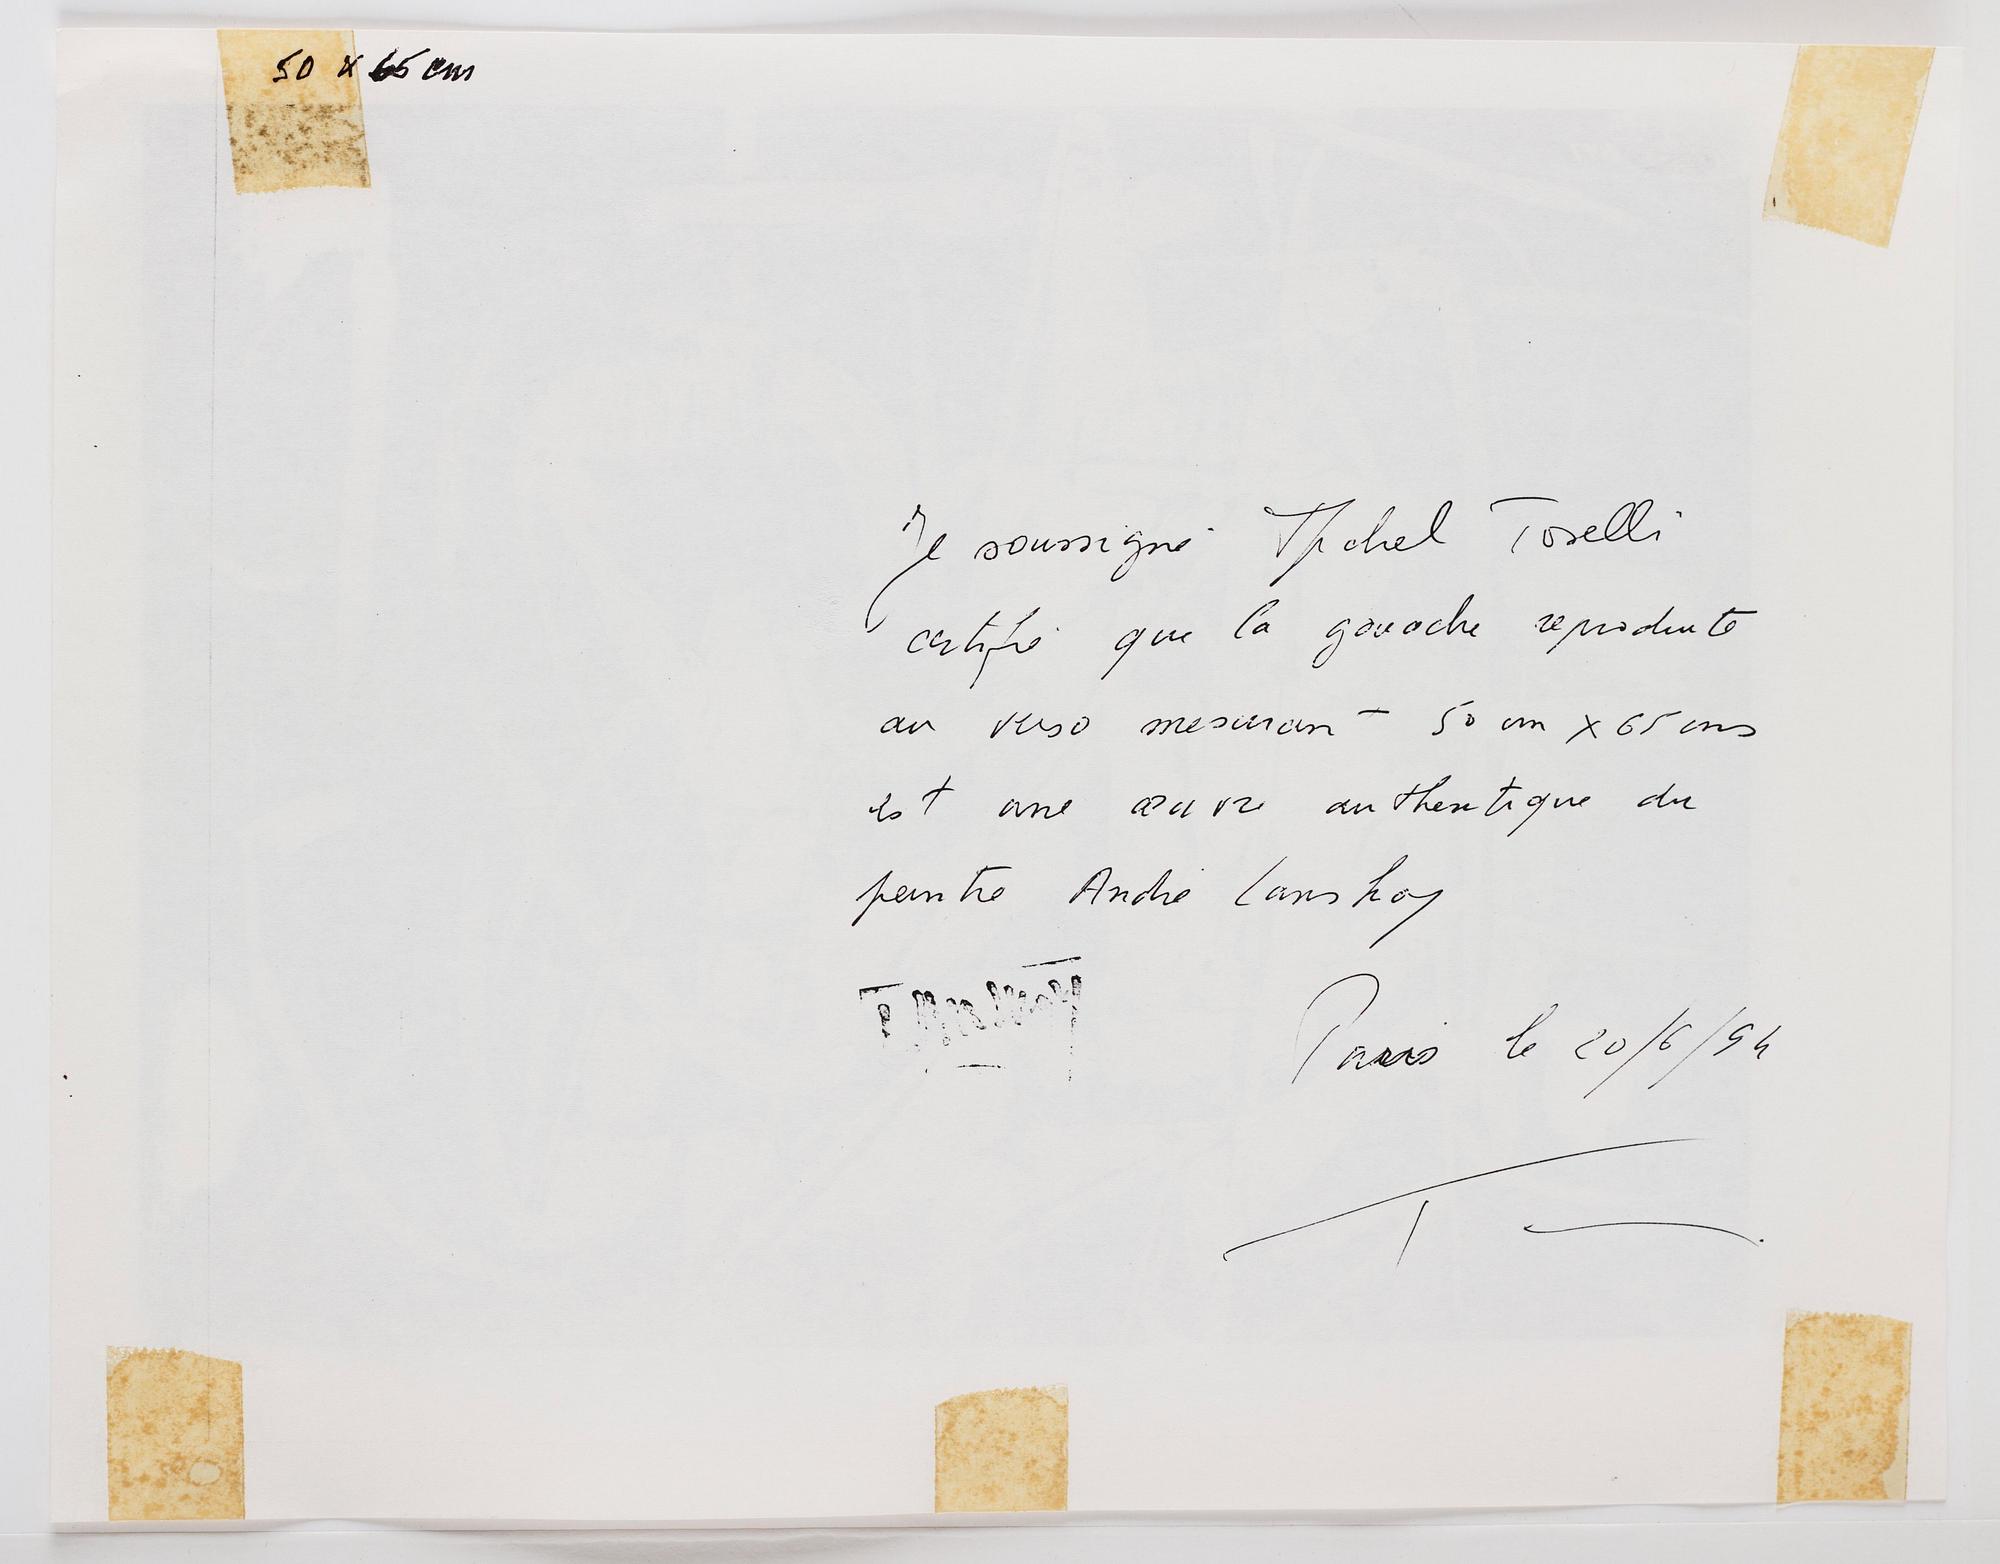 50 x 65 cm
Je soussigné Michel Toselli
certifie que la gouache reproduite
au verso mesurant 50 cm x 65 cms
est une œuvre authentique du
peintre André Lanskoy
Paris le 20/6/94